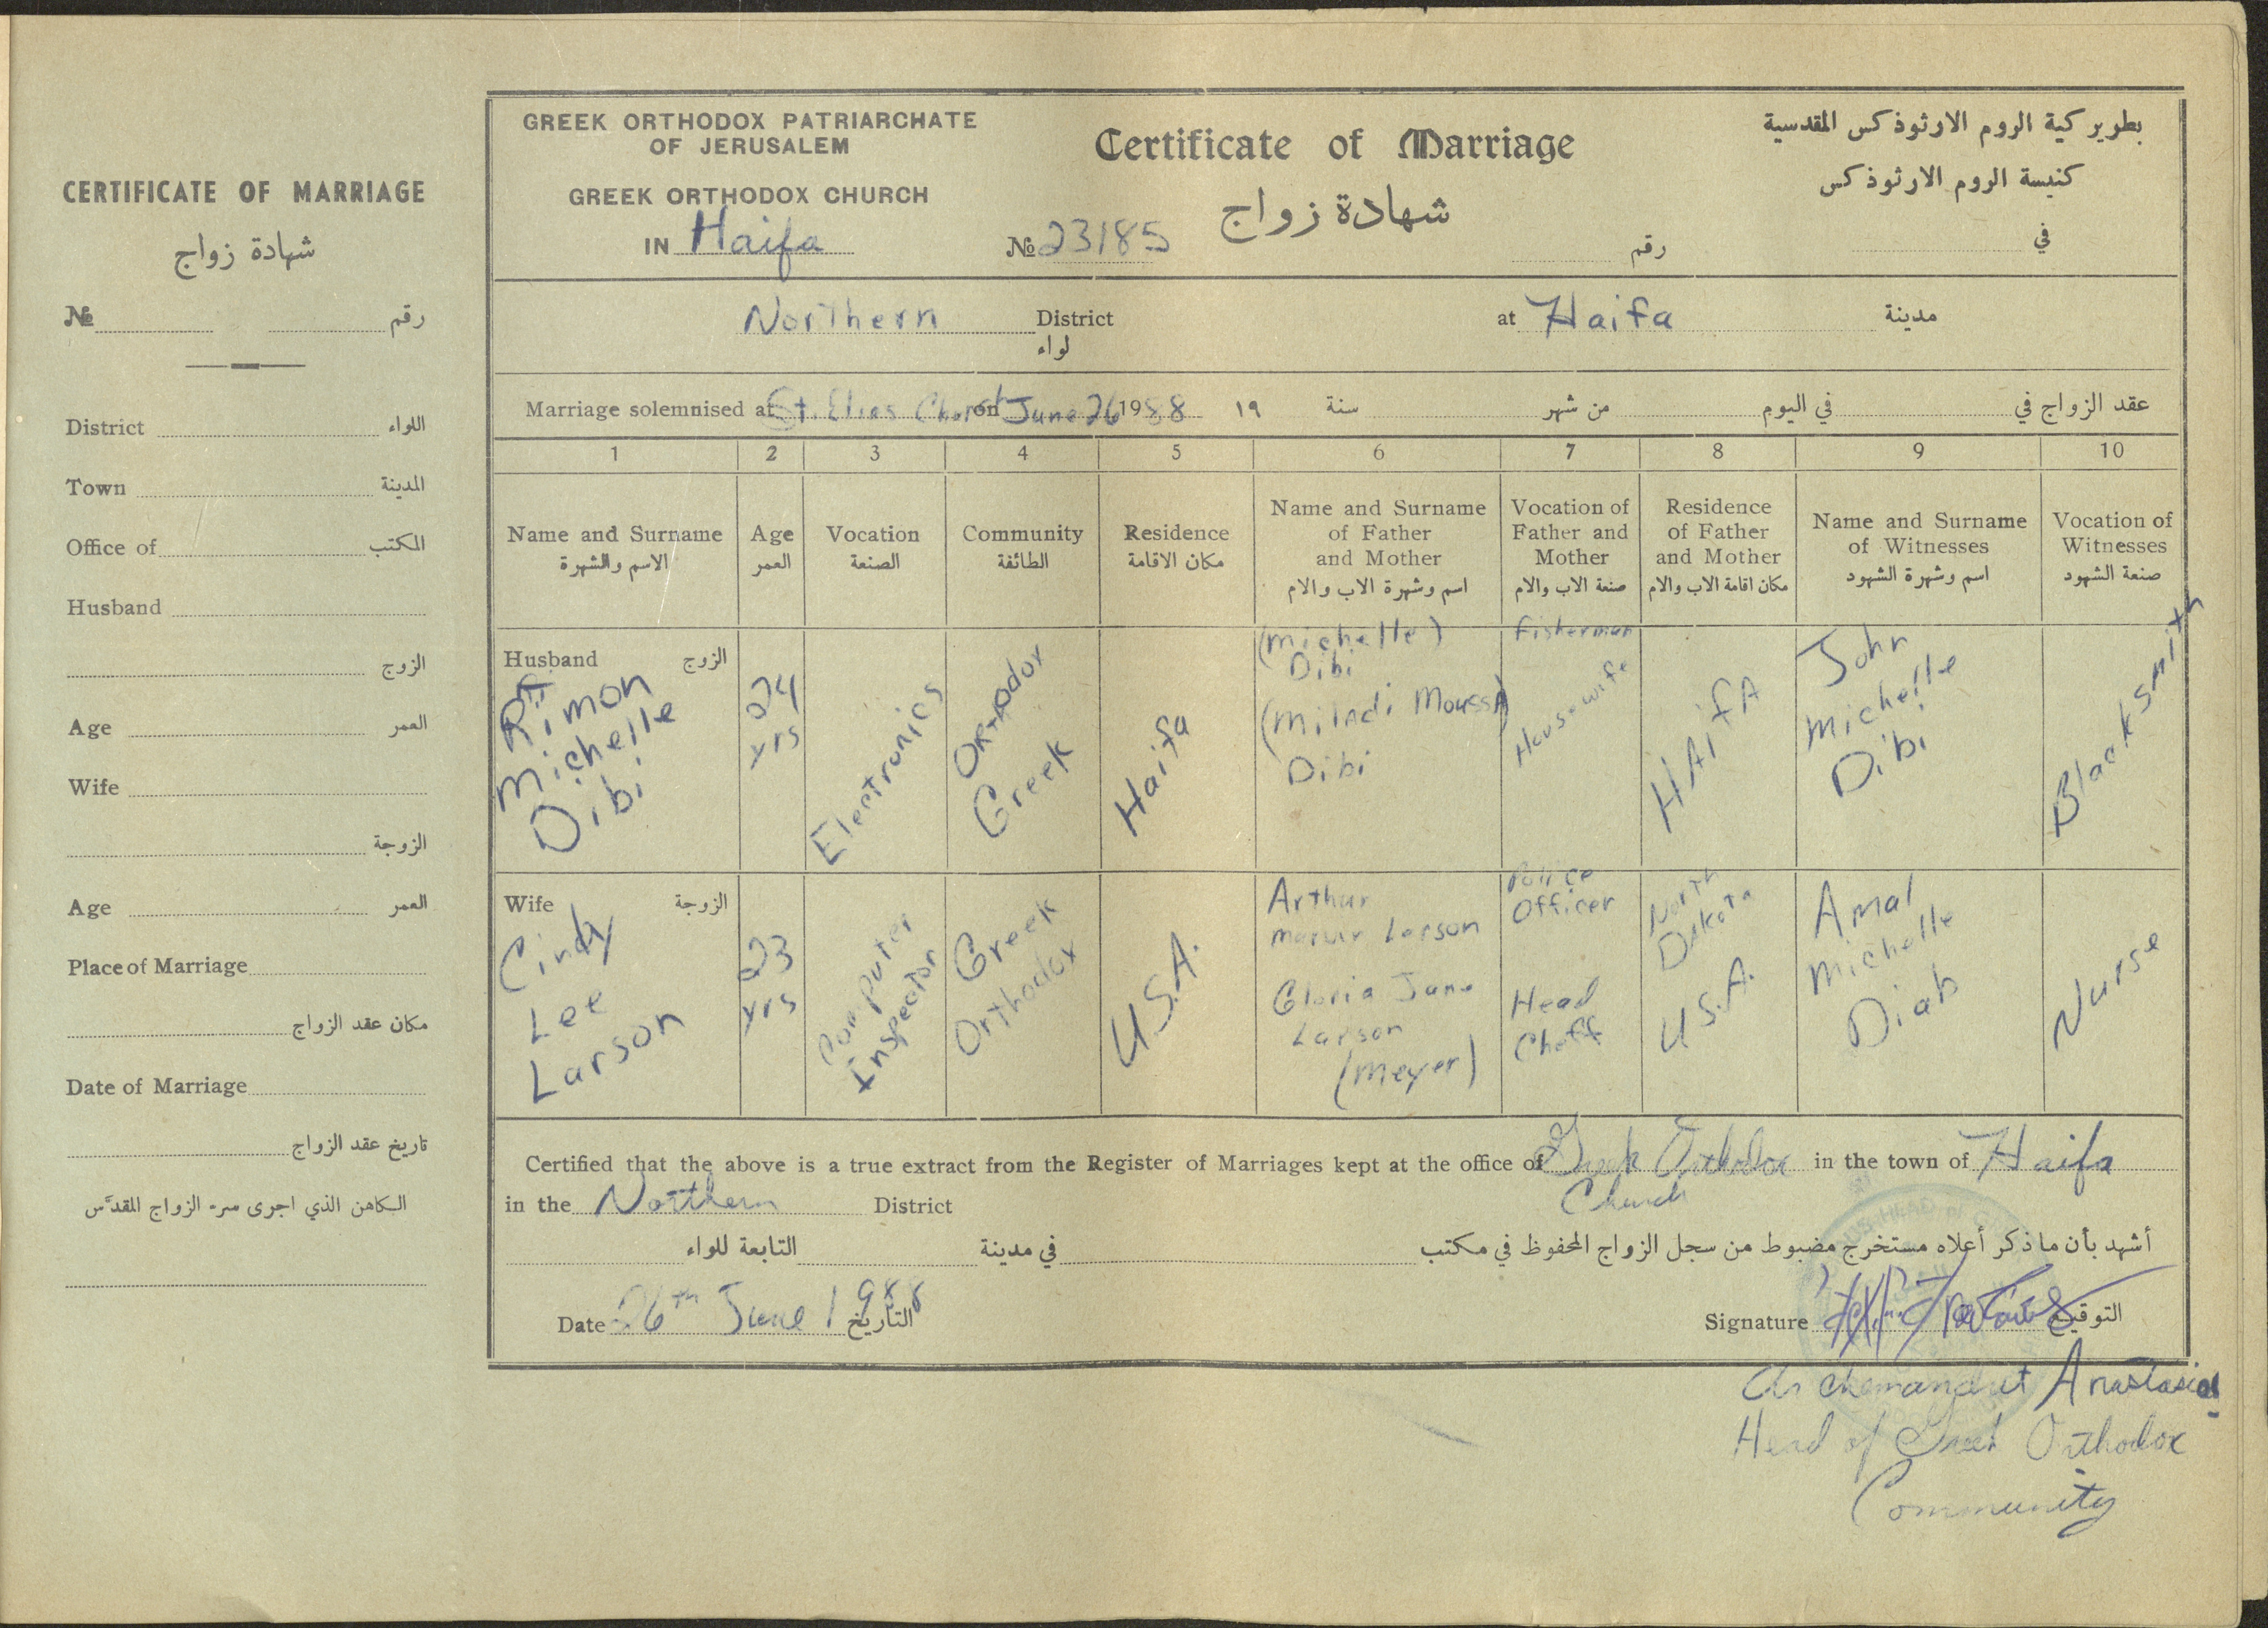 CERTIFICATE OF MARRIAGE
شهادة زواج
№ رقم
District اللواء
Town المدينة
Office of المكتب
Husband
الزوج
Age العمر
Wife
الزوجة
Age العمر
Place of Marriage
مكان عقد الزواج
Date of Marriage
تاريخ عقد الزواج
الكاهن الذي اجرى سر الزواج المقدّس
GREEK ORTHODOX PATRIARCHATE
OF JERUSALEM
GREEK ORTHODOX CHURCH
IN Haifa
Certificate of Marriage
شهادة زواج
№ 23185 رقم
بطريركية الروم الارثوذكس المقدسية
كنيسة الروم الارثوذكس
في
Northern District
لواء
at Haifa مدينة
Marriage solemnised at St. Elias on June 26 1988
عقد الزواج في في اليوم من شهر سنة ١٩
1 2 3 4 5 6 7 8 9 10
Name and Surname
الاسم والشهرة
Age
العمر
Vocation
الصنعة
Community
الطائفة
Residence
مكان الاقامة
Name and Surname
of Father
and Mother
اسم وشهرة الاب والام
Vocation of
Father and
Mother
صنعة الاب والام
Residence
of Father
and Mother
مكان اقامة الاب والام
Name and Surname
of Witnesses
اسم وشهرة الشهود
Vocation of
Witnesses
صنعة الشهود
Husband الزوج
Rimon
Michelle
Dibi
24
yrs
Electronics
Orthodox
Greek
Haifa
(Michelle)
Dibi
(Miladi Moussa)
Dibi
Fisherman
Housewife
HAifA
John
Michelle
Dibi
Blacksmith
Wife الزوجة
Cindy
Lee
Larson
23
yrs
Computer
Inspector
Greek
Orthodox
U.S.A.
Arthur
Larson
Gloria Jane
Larson
(Meyer)
Police
Officer
Head
Cheff
North
Dakota
U.S.A.
Amal
Michelle
Diab
Nurse
Certified that the above is a true extract from the Register of Marriages kept at the office of Greek Orthodox in the town of Haifa
Church
in the Northern District
أشهد بأن ما ذكر أعلاه مستخرج مضبوط من سجل الزواج المحفوظ في مكتب في مدينة التابعة للواء
Date 26th June 1988 التاريخ
Signature التوقيع
Archemandrit Anastasios
Head of Greek Orthodox
Community